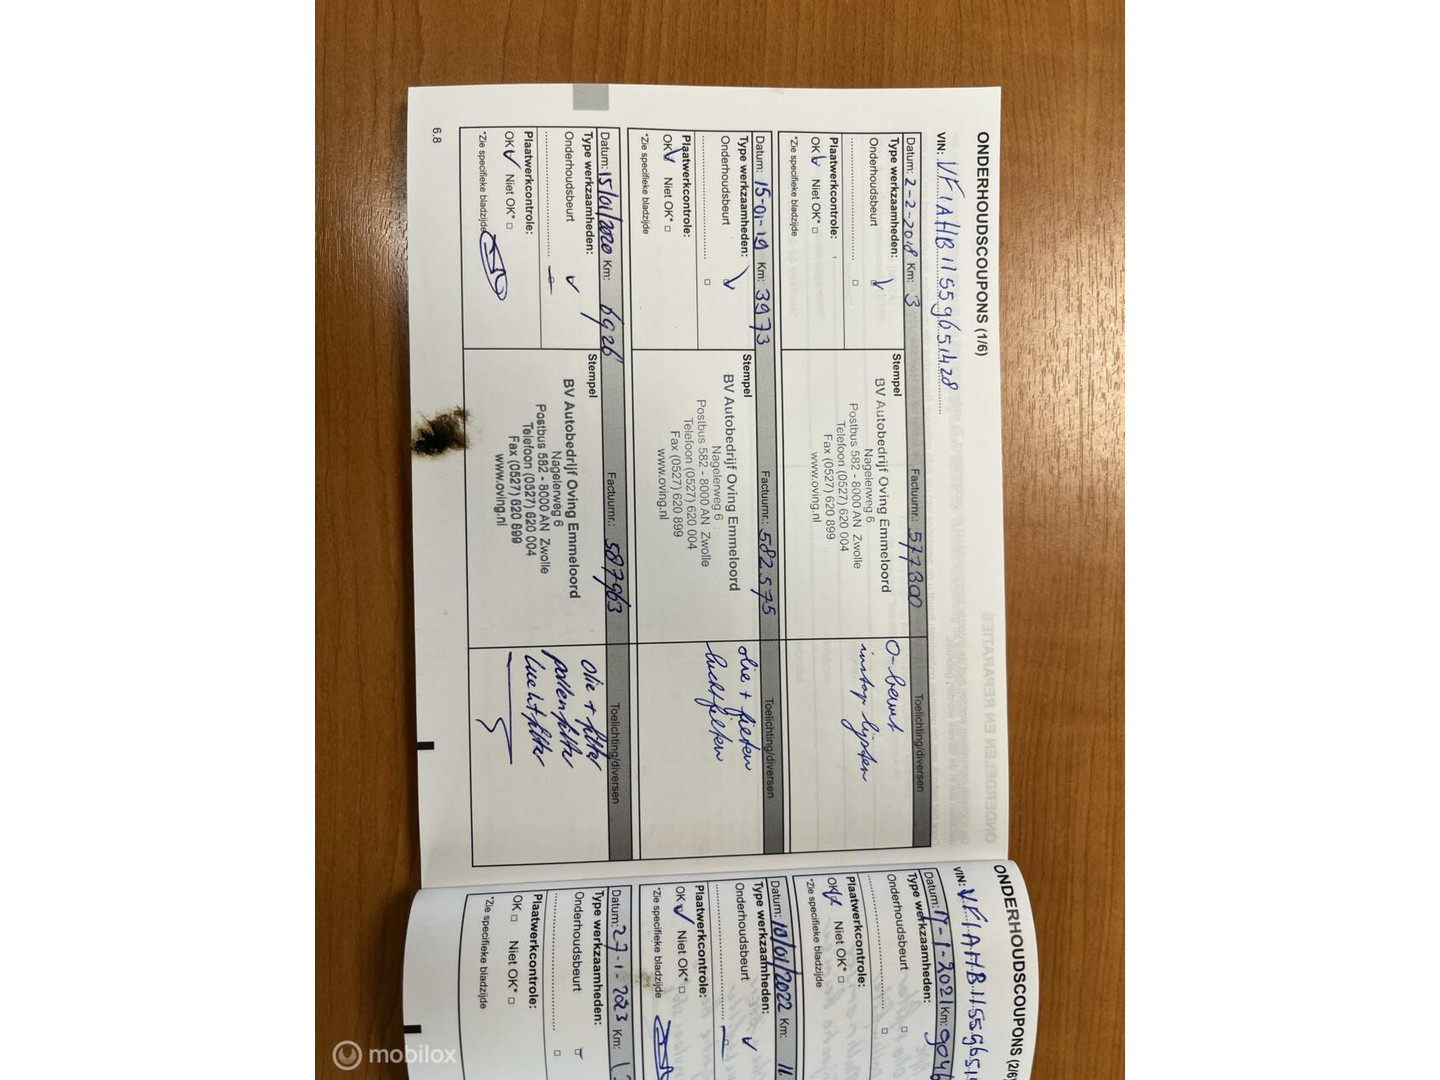 ONDERHOUDSCOUPONS (1/6)
VIN: VF1AHB11559651428
Datum: 2-2-2018 Km: 3 Factuurnr.: 577800 Toelichting/diversen
Type werkzaamheden:
Onderhoudsbeurt
Plaatwerkcontrole:
OK Niet OK*
*Zie specifieke bladzijde
Stempel
BV Autobedrijf Oving Emmeloord
Nagelerweg 6
Postbus 582 - 8000 AN Zwolle
Telefoon (0527) 620 004
Fax (0527) 620 899
www.oving.nl
O-beurt
instap lijsten
Datum: 15-01-19 Km: 3973 Factuurnr.: 582.575 Toelichting/diversen
Type werkzaamheden:
Onderhoudsbeurt
Plaatwerkcontrole:
OK Niet OK*
*Zie specifieke bladzijde
Stempel
BV Autobedrijf Oving Emmeloord
Nagelerweg 6
Postbus 582 - 8000 AN Zwolle
Telefoon (0527) 620 004
Fax (0527) 620 899
www.oving.nl
olie +
Datum: 15/01/2020 Km: 6926 Factuurnr.: 587963 Toelichting/diversen
Type werkzaamheden:
Onderhoudsbeurt
Plaatwerkcontrole:
OK Niet OK*
*Zie specifieke bladzijde
Stempel
BV Autobedrijf Oving Emmeloord
Nagelerweg 6
Postbus 582 - 8000 AN Zwolle
Telefoon (0527) 620 004
Fax (0527) 620 899
www.oving.nl
olie + filter
pollenfilter
luchtfilter
6.8
ONDERHOUDSCOUPONS (2/6)
VIN: VF1AHB115596514
Datum: 17-1-2021 Km: 9046
Type werkzaamheden:
Onderhoudsbeurt
Plaatwerkcontrole:
OK Niet OK*
*Zie specifieke bladzijde
Datum: 10/01/2022 Km: 11
Type werkzaamheden:
Onderhoudsbeurt
Plaatwerkcontrole:
OK Niet OK*
*Zie specifieke bladzijde
Datum: 27-1-2023 Km:
Type werkzaamheden:
Onderhoudsbeurt
Plaatwerkcontrole:
OK Niet OK*
*Zie specifieke bladzijde
mobilox